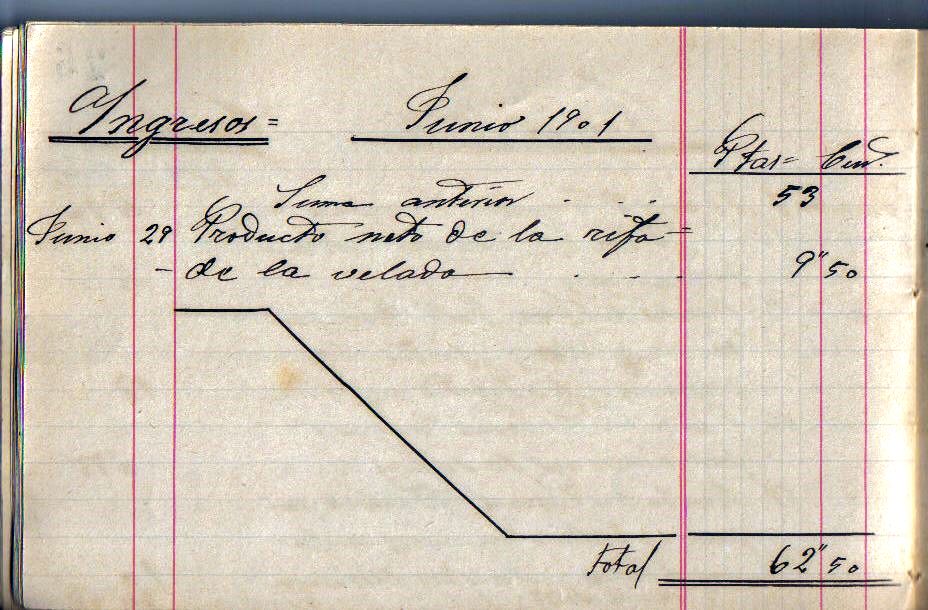 Ingresos= Junio 1901
Ptas= Cent.
Suma anterior . . . . 53
Junio 29 Producto neto de la rifa=
- de la velada . . . . 9"50
total 62"50